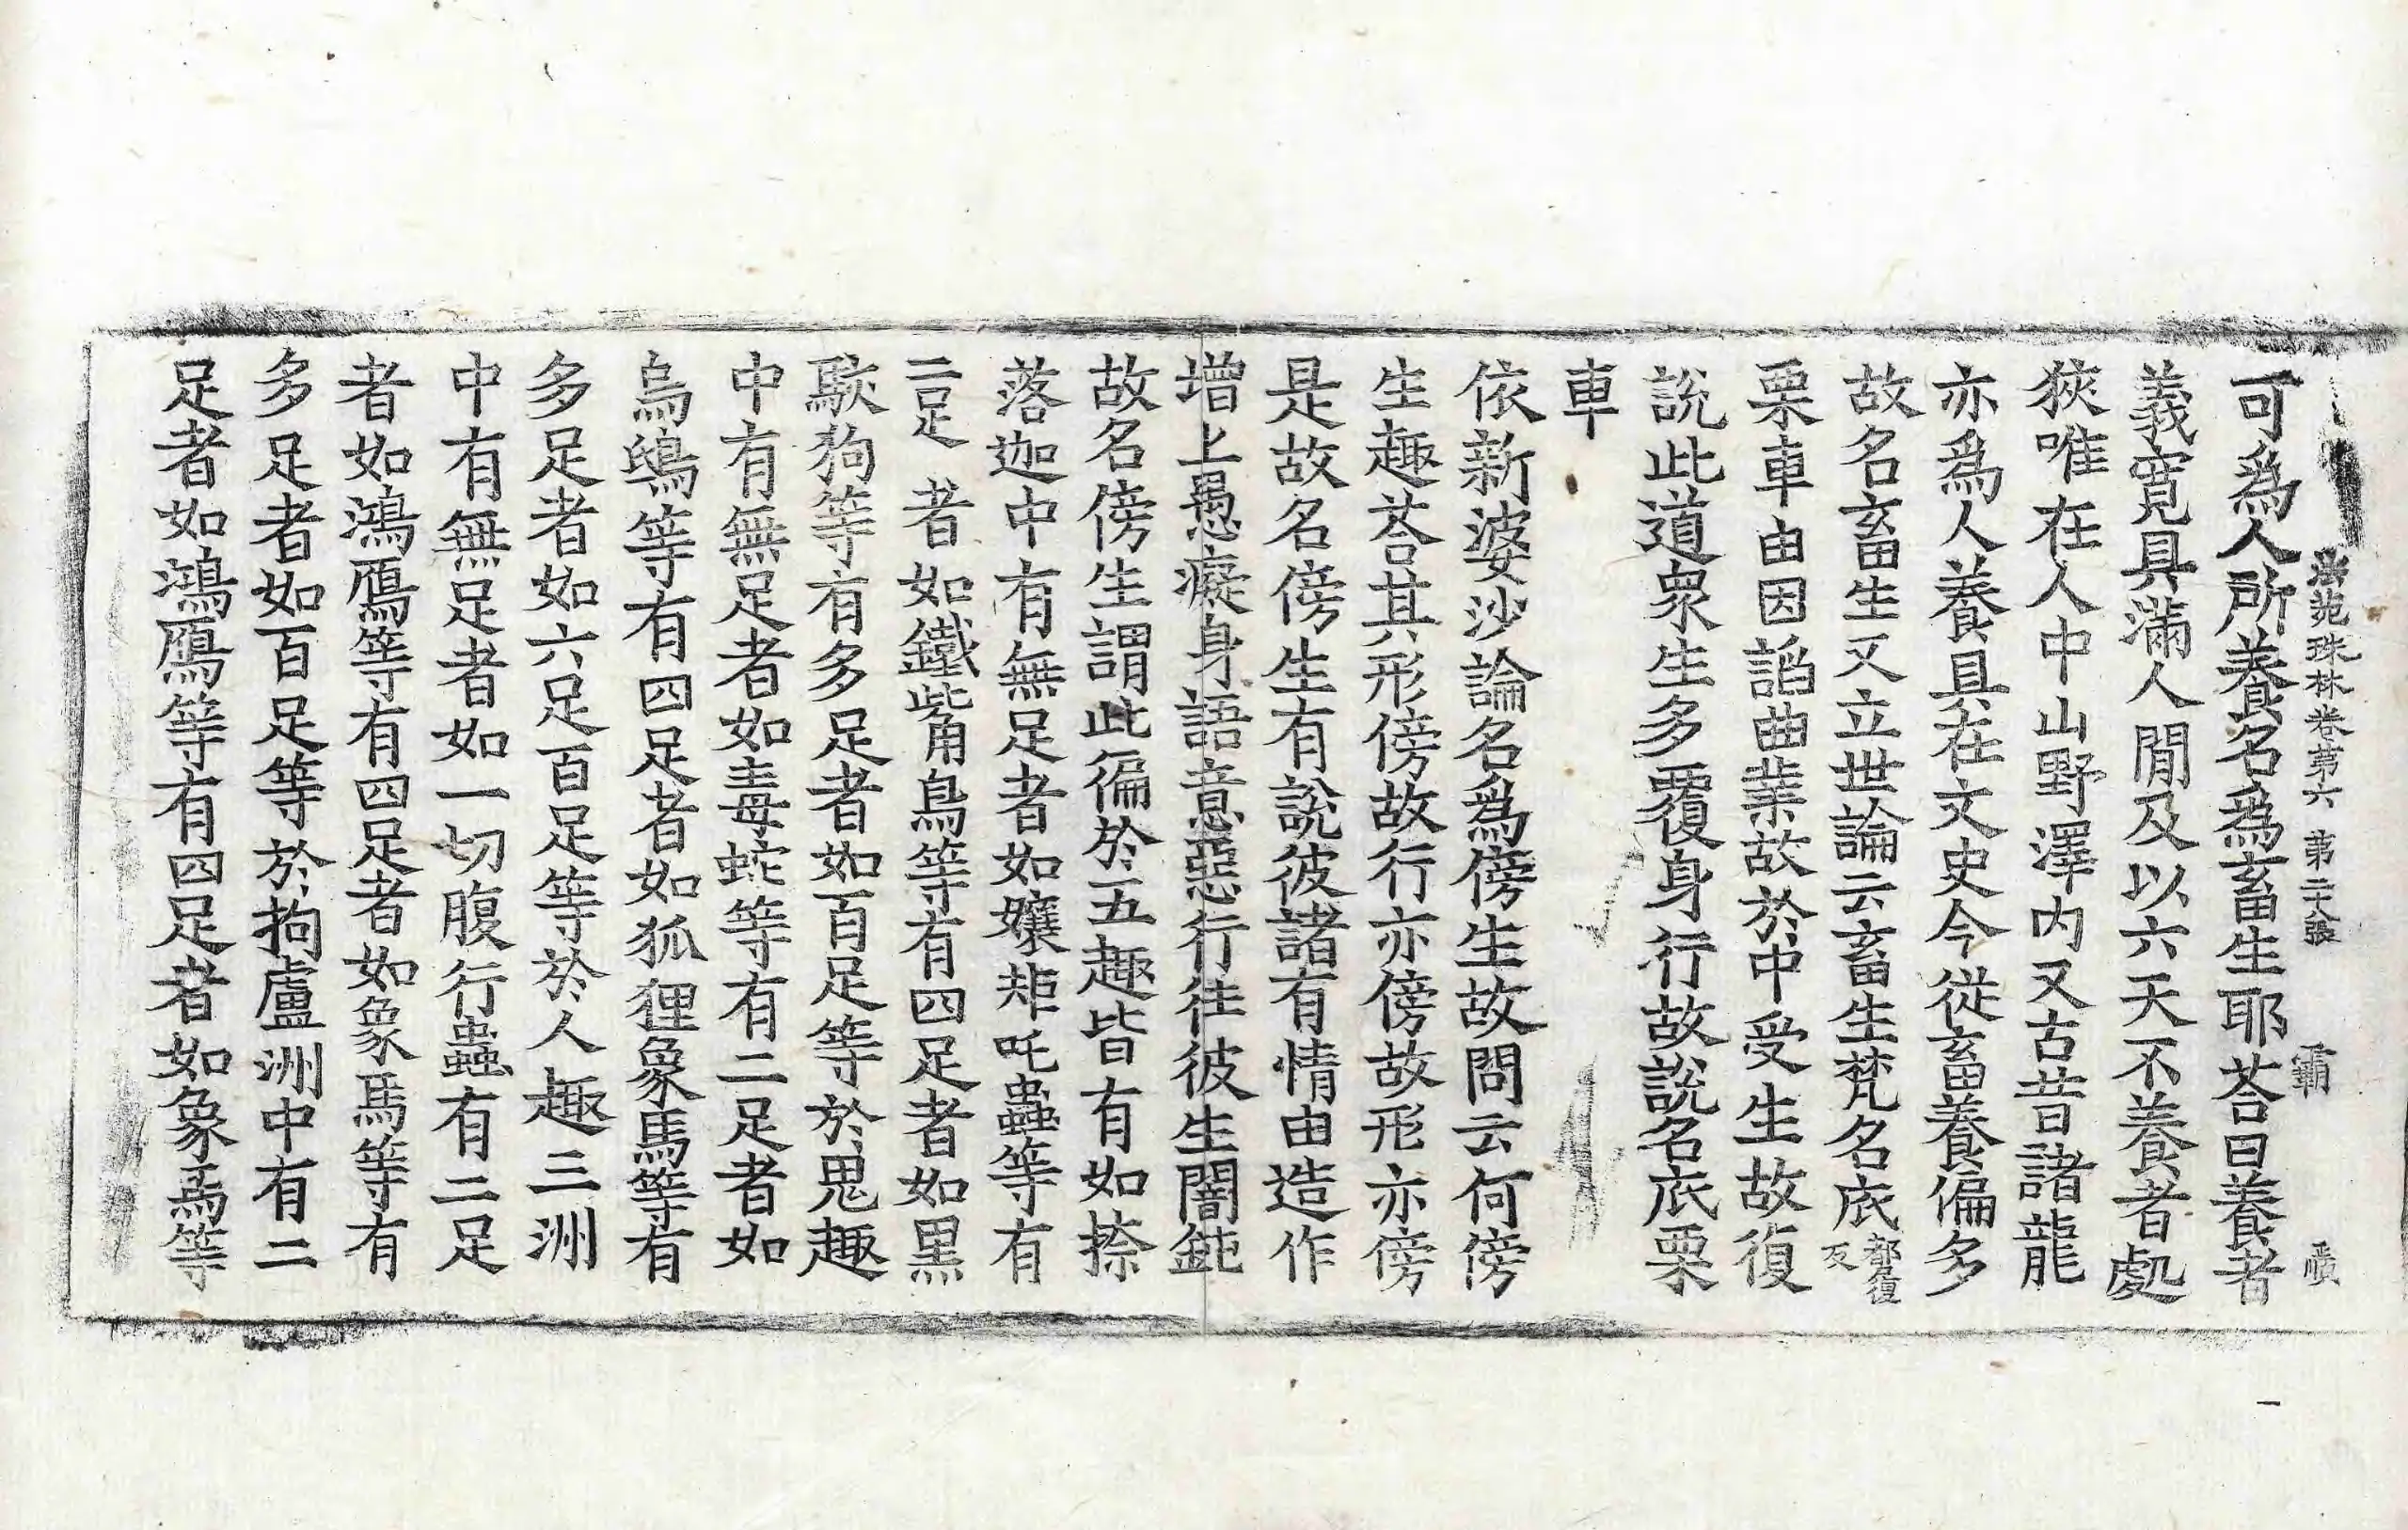 法苑珠林卷第六 第二十八張 霸 順
可爲人所養名爲畜生耶荅曰養者
義寬具滿人間及以六天不養者處
狹唯在人中山野澤内又古昔諸龍
亦爲人養具在文史今從畜養偏多
故名畜生又立世論云畜生梵名底都履反
栗車由因諂曲業故於中受生故復
說此道衆生多覆身行故說名底栗
車
依新婆沙論名爲傍生故問云何傍
生趣荅其形傍故行亦傍故形亦傍
是故名傍生有說彼諸有情由造作
增上愚癡身語意惡行徃彼生闇鈍
故名傍生謂此徧於五趣皆有如捺
落迦中有無足者如孃矩吒蟲等有
二足者如鐵觜鳥等有四足者如黑
駮狗等有多足者如百足等於鬼趣
中有無足者如毒蛇等有二足者如
烏鴟等有四足者如狐狸象馬等有
多足者如六足百足等於人趣三洲
中有無足者如一切腹行蟲有二足
者如鴻鴈等有四足者如象馬等有
多足者如百足等於拘盧洲中有二
足者如鴻鴈等有四足者如象馬等